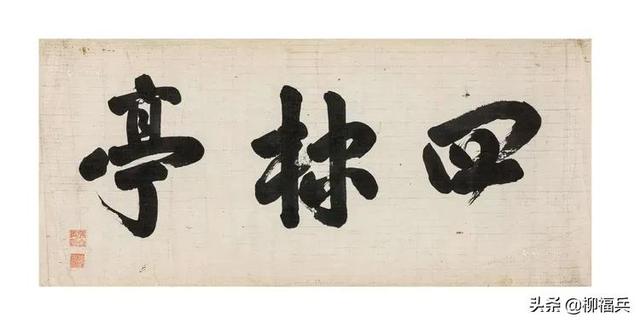 四林亭
头条 @柳福兵